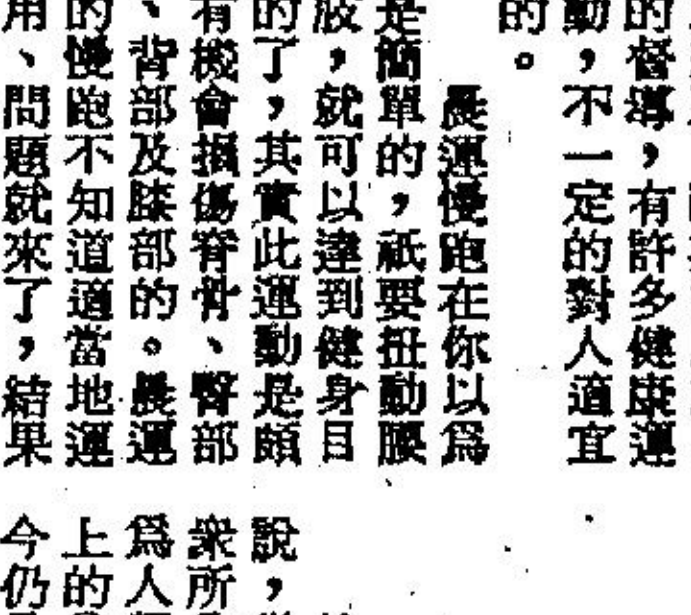 的督導，有許多健康運
動，不一定的對人適宜
的。
晨運慢跑在你以爲
是簡單的，祇要扭動腰
波，就可以達到健身目
的了，其實此運動是頗
有機會損傷脊骨、臀部
、背部及膝部的。晨運
的慢跑不知道適當地運
用、問題就來了，結果
說，
衆所
爲人
上的
今仍